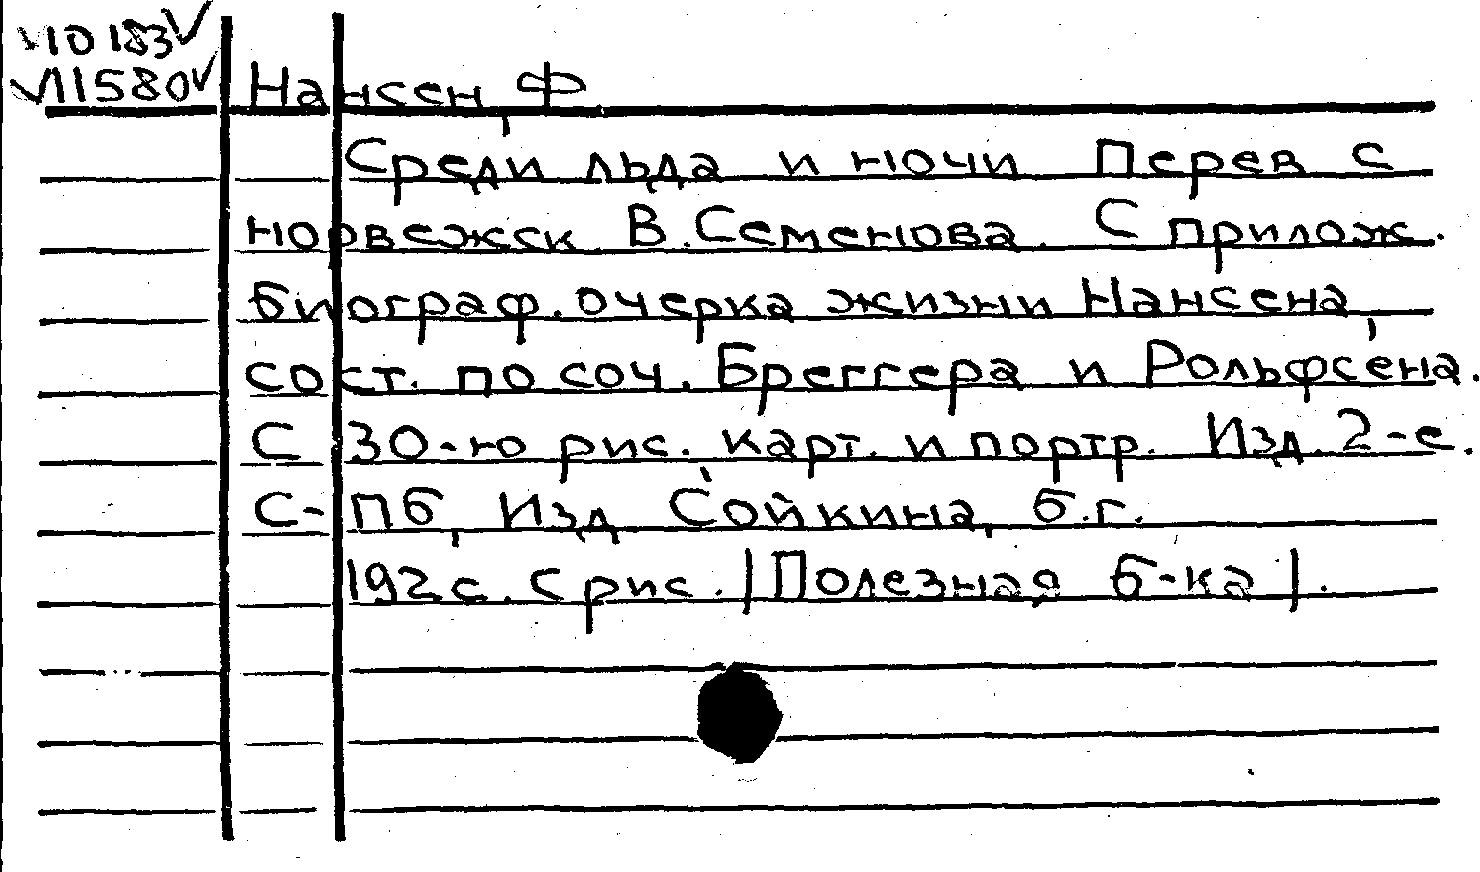 V10183V
V11580V
Нансен, Ф
Среди льда и ночи Перев с
норвежск. В.Семенова. С прилож.
биограф. очерка жизни Нансена,
сост. по соч. Бреггера и Рольфсена.
С 30-ю рис. карт. и портр. Изд. 2-е.
С-Пб, Изд Сойкина, б.г.
192 с. с рис. |Полезная б-ка|.